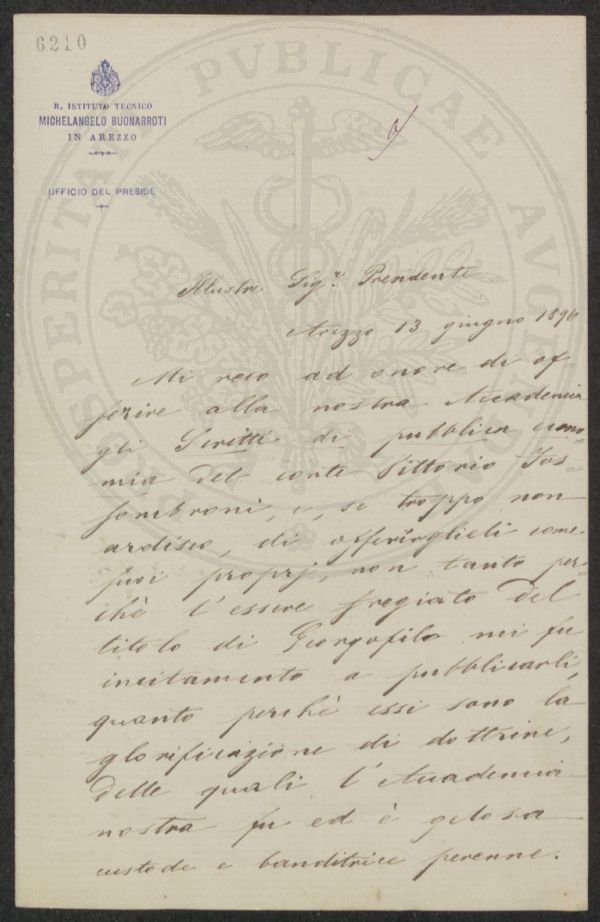 6210
R. ISTITUTO TECNICO
MICHELANGELO BUONARROTI
IN AREZZO
UFFICIO DEL PRESIDE
PROSPERITATI PVBLICAE AVGENDAE
Illustre Sig.r Presidente
Arezzo 13 giugno 1896
Mi reco ad onore di of-
ferire alla nostra Accademia
gli Scritti di pubblica econo
mia del conte Vittorio Fos-
sombroni, e, se troppo non
ardisco, di offerirglieli come
suoi proprj, non tanto per-
chè l'essere fregiato del
titolo di Georgofilo mi fu
incitamento a pubblicarli,
quanto perchè essi sono la
glorificazione di dottrine,
delle quali l'Accademia
nostra fu ed è gelosa
custode e banditrice perenne.